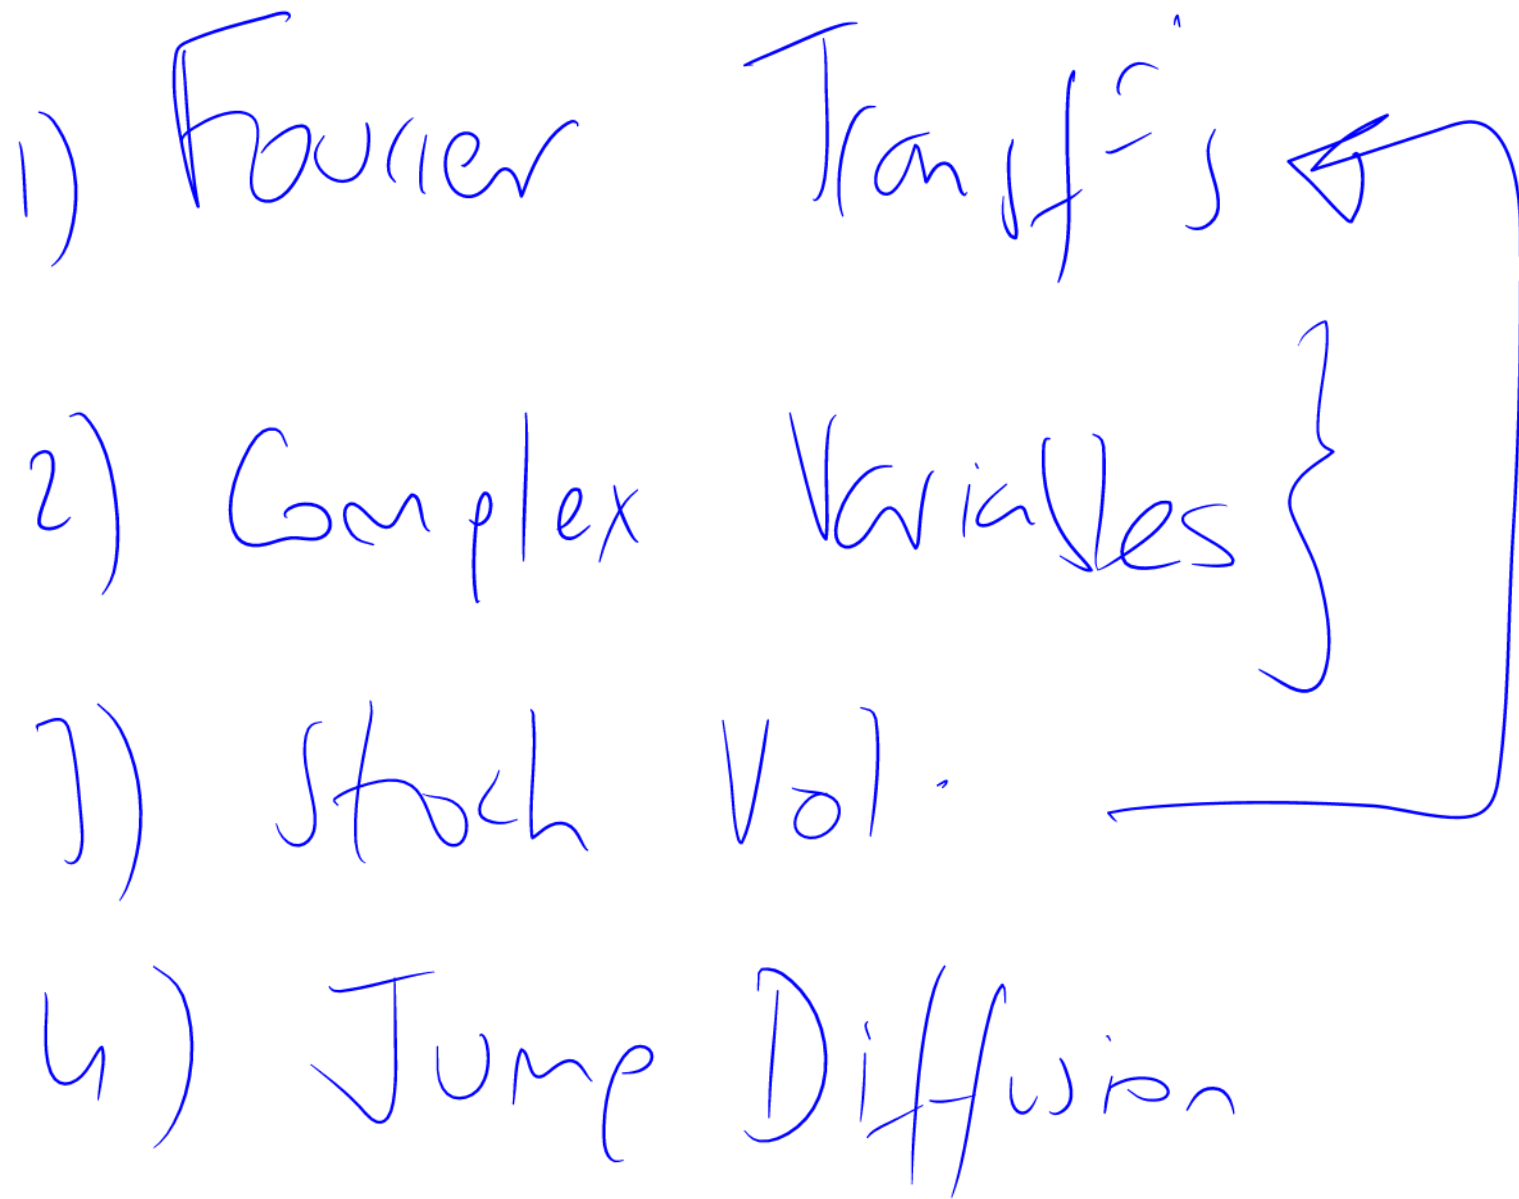 1) Fourier Transf-s
2) Complex Variables
3) Stoch Vol.
4) Jump Diffusion